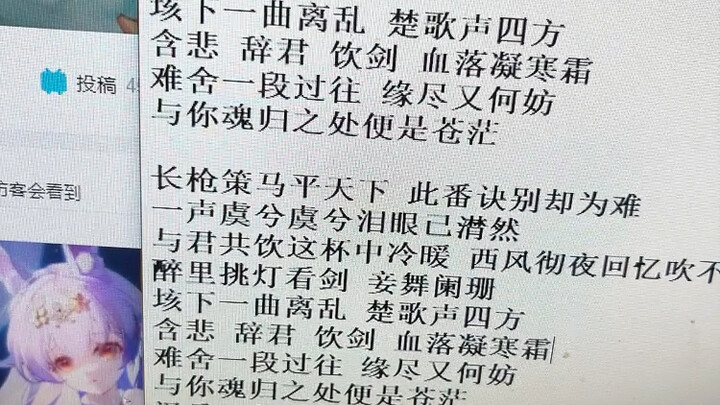 垓下一曲离乱 楚歌声四方
含悲 辞君 饮剑 血落凝寒霜
难舍一段过往 缘尽又何妨
与你魂归之处便是苍茫
投稿 4
访客会看到
长枪策马平天下 此番诀别却为难
一声虞兮虞兮泪眼已潸然
与君共饮这杯中冷暖 西风彻夜回忆吹不
醉里挑灯看剑 妾舞阑珊
垓下一曲离乱 楚歌声四方
含悲 辞君 饮剑 血落凝寒霜
难舍一段过往 缘尽又何妨
与你魂归之处便是苍茫